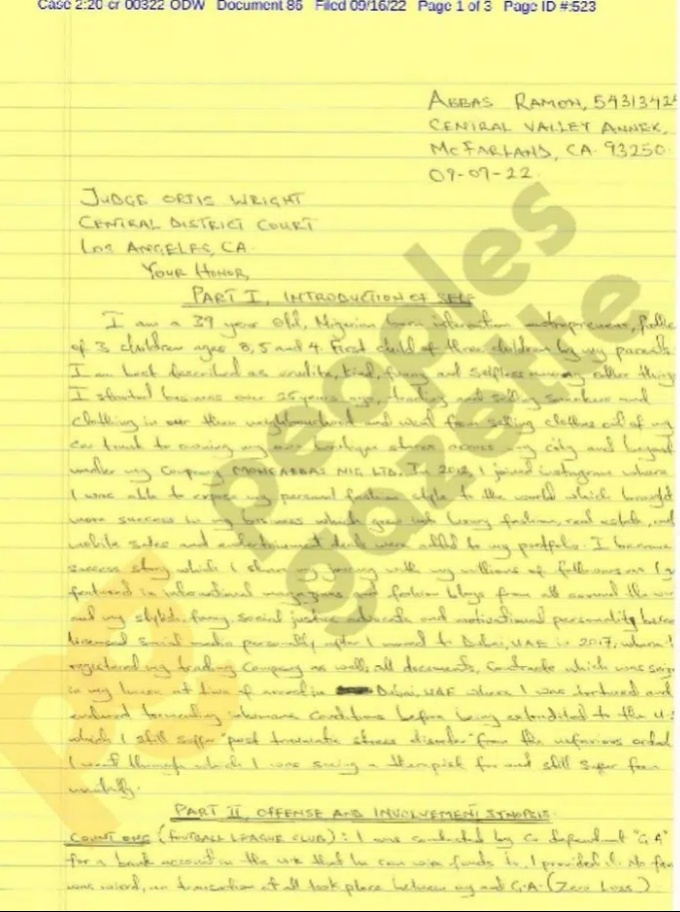 Case 2:20-cr-00322-ODW Document 86 Filed 09/16/22 Page 1 of 3 Page ID #:523
ABBAS RAMON, 5431342
CENTRAL VALLEY ANNEX,
MCFARLAND, CA. 93250.
09-07-22.
JUDGE OTIS WRIGHT
CENTRAL DISTRICT COURT
LOS ANGELES, CA.
YOUR HONOR,
PART I, INTRODUCTION OF SELF
I am a 39 year old, Nigerian born
of 3 children ages 8, 5 and 4. First child of three children by my parents.
I am best described as erudite, kind, funny and selfless among other things
I started business over 25 years ago, trading and selling sneakers and
clothing in our then neighbourhood and went from selling clothes out of my
car trunk to owning my own stores across my city and beyond
under my Company, NIG LTD. In 2012, I joined instagram where
I was able to expose my personal fashion style to the world which brought
more success in my business which grew into luxury fashion, real estate, and
website sales and entertainment were added to my portfolio. I became
success story which I share my journey with my millions of followers as I
featured in international magazines and fashion blogs from all around the
and my stylish, funny, social justice advocate and motivational personality
licensed social media personality after I moved to Dubai, UAE in 2017, where I
registered my trading Company as well, all documents, Contracts which was
in my house at time of arrest in Dubai, UAE where I was tortured and
endured inhumane conditions before being extradited to the U.S
which I still suffer "post traumatic stress disorder" from the nefarious ordeal
I went through which I was seeing a therapist for and still suffer from
mentally.
PART II, OFFENSE AND INVOLVEMENT SYNOPSIS
COUNT ONE (FOOTBALL LEAGUE CLUB): I was contacted by Co "G.A"
for a bank account in the that he can wire funds to, I provided it. No
was wired, no transaction at all took place between my and G.A. (Zero Loss)
peoples
gazette